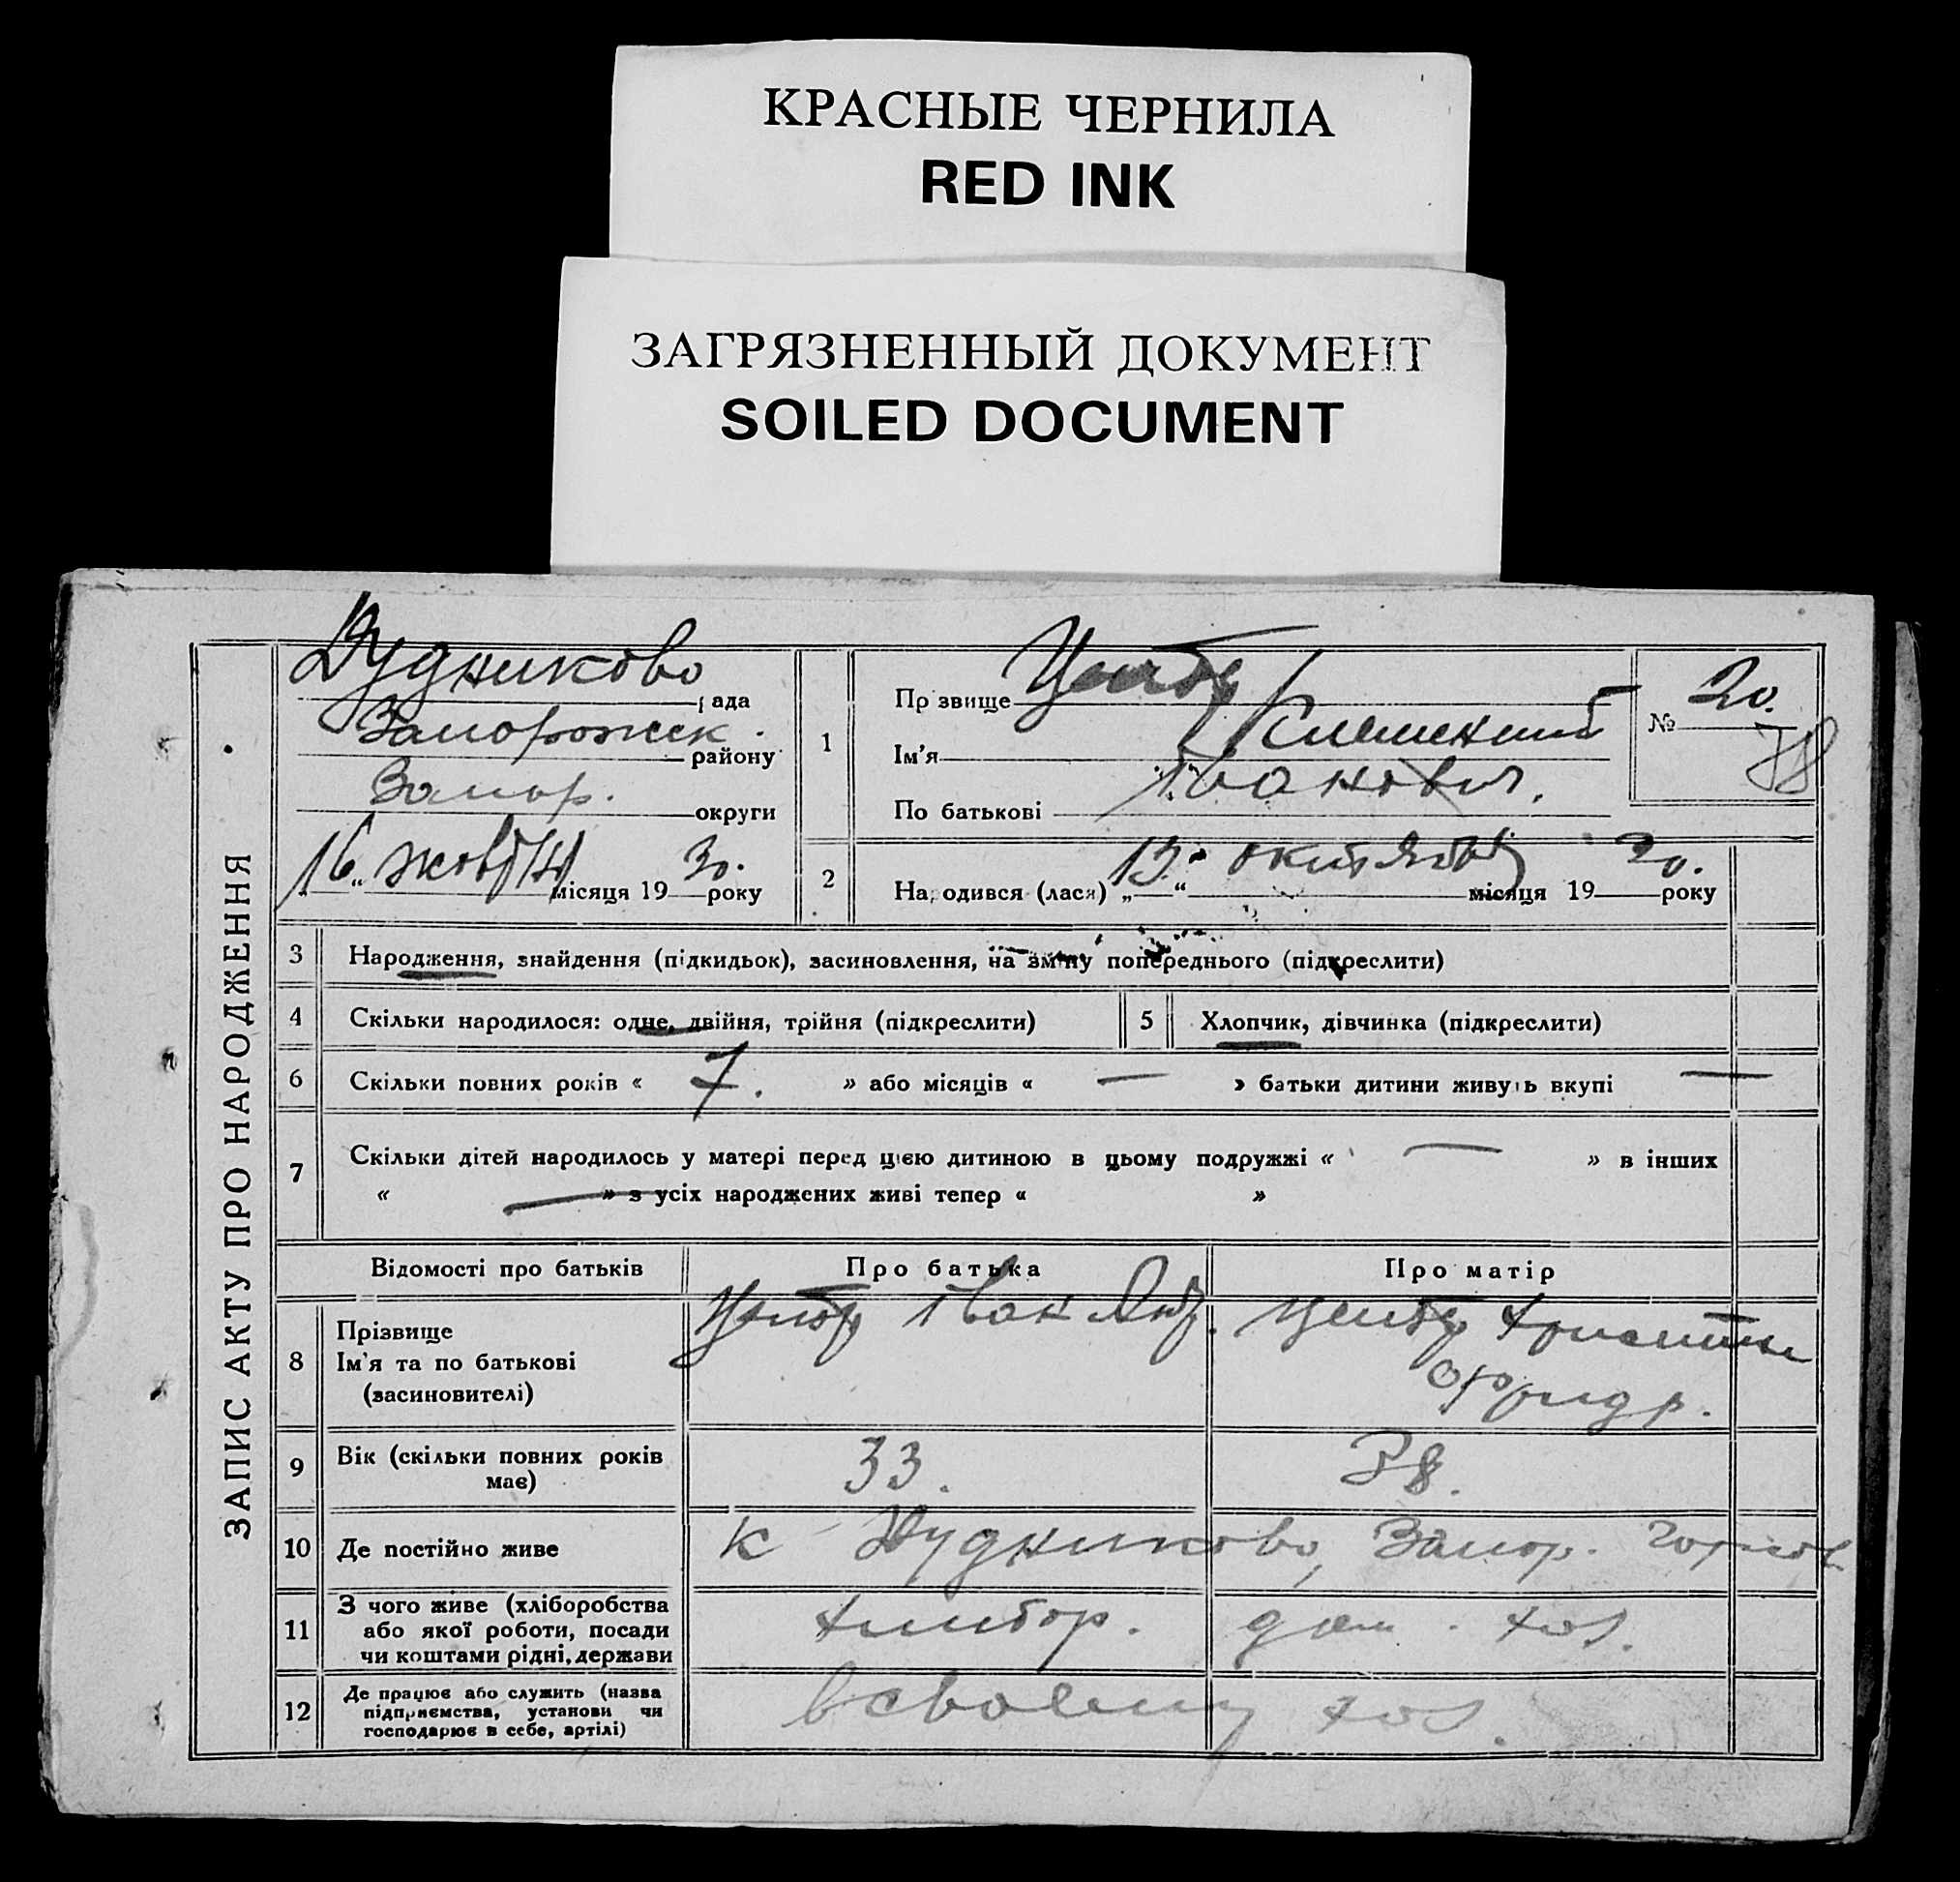 КРАСНЫЕ ЧЕРНИЛА
RED INK
ЗАГРЯЗНЕННЫЙ ДОКУМЕНТ
SOILED DOCUMENT
ЗАПИС АКТУ ПРО НАРОДЖЕННЯ
Дудниково
рада
Запорожск.
району
Запор.
округи
16 " жовтня місяця 1930. року
1
Прізвище
Ім'я Климент
По батькові Іванович.
№ 20.
78
2
Народився (лася) „13" октября місяця 1930. року
3 Народження, знайдення (підкидьок), засиновлення, на зміну попереднього (підкреслити)
4 Скільки народилося: одне, двійня, трійня (підкреслити) 5 Хлопчик, дівчинка (підкреслити)
6 Скільки повних років « 7. » або місяців « — » батьки дитини живуть вкупі —
7 Скільки дітей народилось у матері перед цією дитиною в цьому подружжі « — » в інших
« — » з усіх народжених живі тепер « »
Відомості про батьків Про батька Про матір
8 Прізвище
Ім'я та по батькові
(засиновителі)
Іван
Фридр.
9 Вік (скільки повних років має) 33. 38.
10 Де постійно живе к Дудниково, Запор.
11 З чого живе (хліборобства
або якої роботи, посади
чи коштами рідні, держави
хлибор. дом. хоз.
12 Де працює або служить (назва
підприємства, установи чи
господарює в себе, артілі)
в своєму хоз.